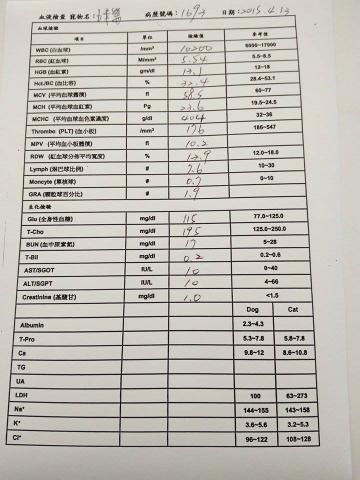 血液檢查 寵物名: 病歷號碼: 1693 日期: 2015.4.13
血球檢驗
項目 單位 檢驗值 參考值
WBC (白血球) /mm³ 10200 6000~17000
RBC (紅血球) M/mm³ 5.54 5.5~8.5
HGB (血紅素) gm/dl 13.1 12~18
Hct./BC (血比容) % 32.4 28.4~53.1
MCV (平均血球體積) fl 58.5 60~77
MCH (平均血球血紅素) Pg 23.6 19.5~24.5
MCHC (平均血球血紅素濃度) g/dl 40.4 32~36
Thrombo (PLT) (血小板) /mm³ 176 186~547
MPV (平均血小板體積) fl 10.2
RDW (紅血球分佈平均寬度) % 12.9 12.0~18.0
Lymph (淋巴球比例) # 7.6 10~30
Moncyte (單核球) # 0.7 0~10
GRA (顆粒球百分比) # 1.9
生化檢驗
Glu (全身性血糖) mg/dl 115 77.0~125.0
T-Cho mg/dl 195 125.0~250.0
BUN (血中尿素氮) mg/dl 17 5~28
T-Bil mg/dl 0.2 0.2~0.6
AST/SGOT IU/L 10 0~40
ALT/SGPT IU/L 10 4~66
Creatinine (基醯甘) mg/dl 1.0 <1.5
Dog Cat
Albumin 2.3~4.3
T-Pro 5.3~7.8 5.8~7.8
Ca 9.8~12 8.6~10.8
TG
UA
LDH 100 63~273
Na⁺ 144~155 143~158
K⁺ 3.6~5.6 3.2~5.3
Cl⁻ 96~122 108~128